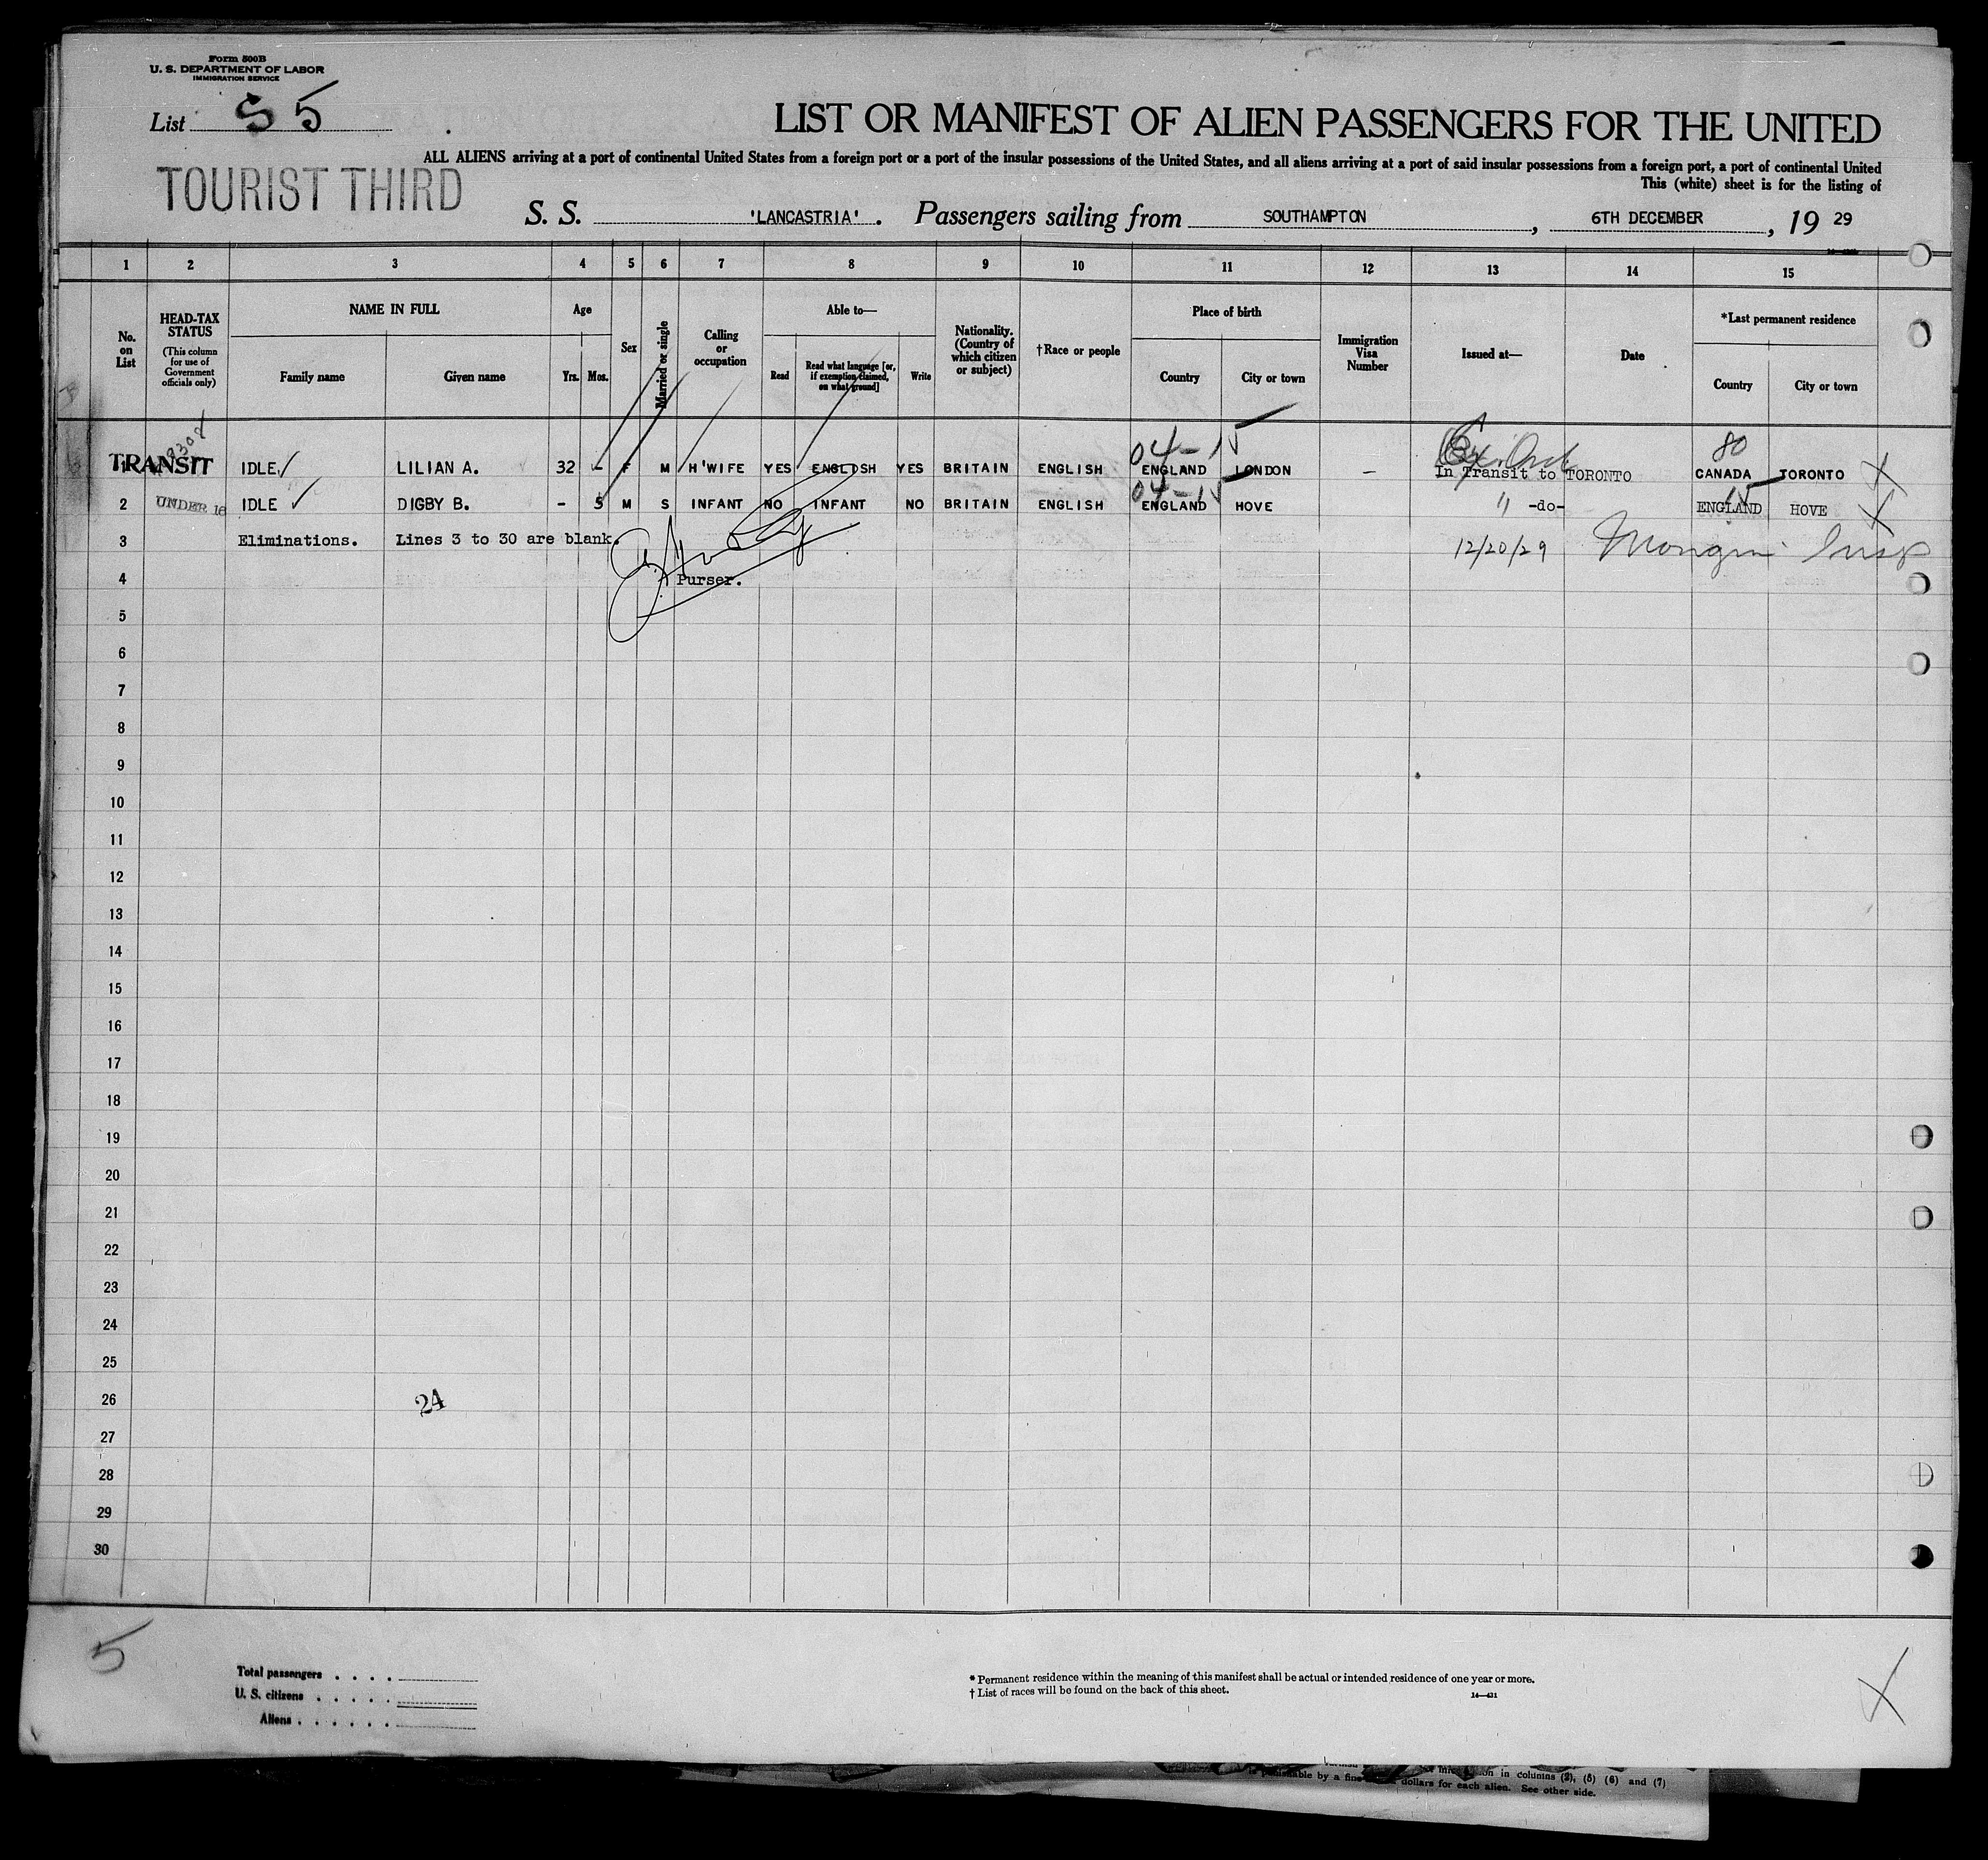 Form 500B
U. S. DEPARTMENT OF LABOR
IMMIGRATION SERVICE
List S 5
LIST OR MANIFEST OF ALIEN PASSENGERS FOR THE UNITED
ALL ALIENS arriving at a port of continental United States from a foreign port or a port of the insular possessions of the United States, and all aliens arriving at a port of said insular possessions from a foreign port, a port of continental United
This (white) sheet is for the listing of
TOURIST THIRD
S. S. 'LANCASTRIA'. Passengers sailing from SOUTHAMPTON, 6TH DECEMBER, 19 29
1 2 3 4 5 6 7 8 9 10 11 12 13 14 15
No. on List
HEAD-TAX STATUS (This column for use of Government officials only)
NAME IN FULL
Family name Given name
Age
Yrs. Mos.
Sex
Married or single
Calling or occupation
Able to—
Read Read what language [or, if exemption claimed, on what ground] Write
Nationality. (Country of which citizen or subject)
†Race or people
Place of birth
Country City or town
Immigration Visa Number
Issued at—
Date
*Last permanent residence
Country City or town
04-15 80
1 TRANSIT IDLE LILIAN A. 32 - F M H'WIFE YES ENGLISH YES BRITAIN ENGLISH ENGLAND LONDON — In Transit to TORONTO CANADA TORONTO X
04-15 15
2 UNDER 16 IDLE DIGBY B. - 5 M S INFANT NO INFANT NO BRITAIN ENGLISH ENGLAND HOVE " -do- ENGLAND HOVE X
3 Eliminations. Lines 3 to 30 are blank. 12/20/29 Insp
4 Purser.
5
6
7
8
9
10
11
12
13
14
15
16
17
18
19
20
21
22
23
24
25
26 24
27
28
29
30
5
Total passengers . . . .
U. S. citizens . . . . .
Aliens . . . . . .
* Permanent residence within the meaning of this manifest shall be actual or intended residence of one year or more.
† List of races will be found on the back of this sheet.
14—421
X
in columns (2), (5) (6) and (7)
is punishable by a fine dollars for each alien. See other side.